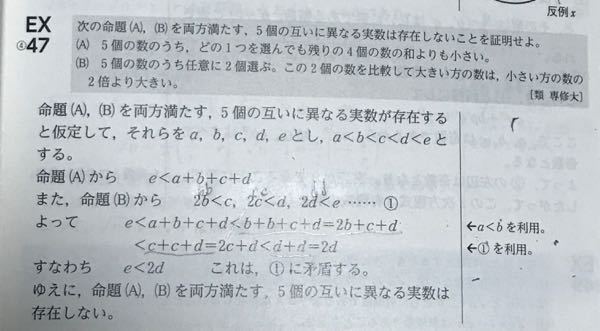 反例 x
EX
④47
次の命題(A), (B)を両方満たす, 5個の互いに異なる実数は存在しないことを証明せよ。
(A) 5個の数のうち, どの1つを選んでも残りの4個の数の和よりも小さい。
(B) 5個の数のうち任意に2個選ぶ。この2個の数を比較して大きい方の数は, 小さい方の数の
2倍より大きい。
[類 専修大]
命題(A), (B)を両方満たす, 5個の互いに異なる実数が存在する
と仮定して, それらを a, b, c, d, e とし, a<b<c<d<e と
する。
命題(A)から e<a+b+c+d
また, 命題(B)から 2b<c, 2c<d, 2d<e …… ①
よって e<a+b+c+d<b+b+c+d=2b+c+d
←a<b を利用。
<c+c+d=2c+d<d+d=2d
←①を利用。
すなわち e<2d これは, ①に矛盾する。
ゆえに, 命題(A), (B)を両方満たす, 5個の互いに異なる実数は
存在しない。